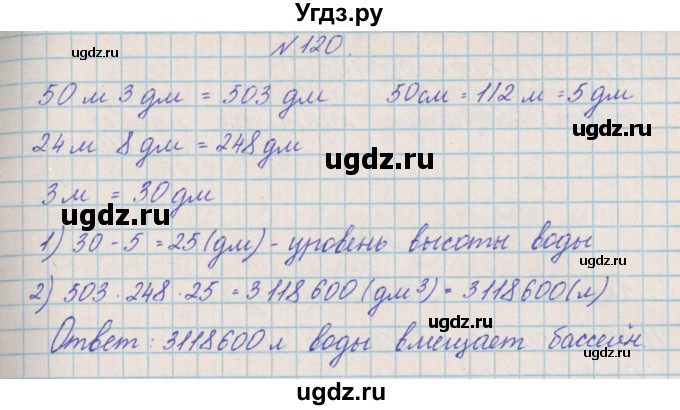 Угдз.ру
N 120.
50 м 3 дм = 503 дм 50см = 112 м = 5 дм
24 м 8 дм = 248 дм
3 м = 30 дм
1) 30 - 5 = 25 (дм) - уровень высоты воды
2) 503 · 248 · 25 = 3118600 (дм3) = 3118600 (л)
Ответ: 3118600 л воды вмещает бассейн.
ugdz.ru
ugdz.ru
ugdz.ru
ugdz.ru
ugdz.ru
ugdz.ru
ugdz.ru
ugdz.ru
ugdz.ru